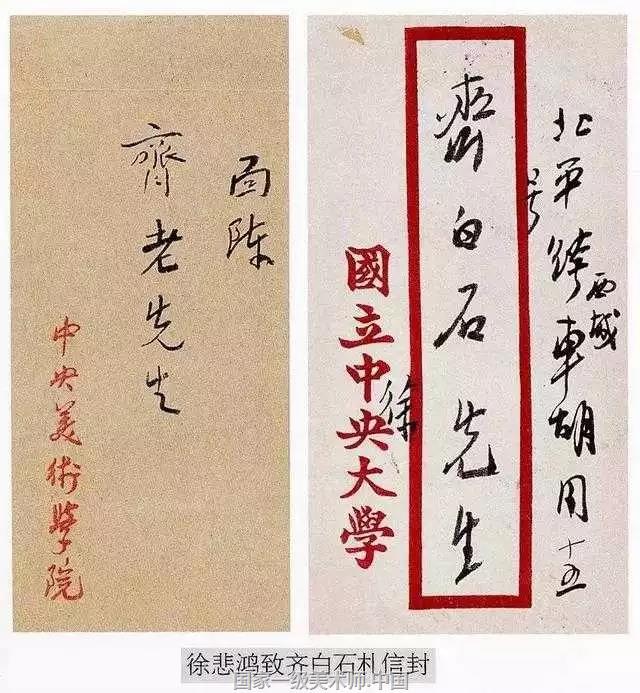 面陳
齊老先生
中央美術學院
北平西城跨車胡同十五
號
齊白石先生
國立中央大學
徐
徐悲鸿致齐白石札信封
国家一级美术师.中国